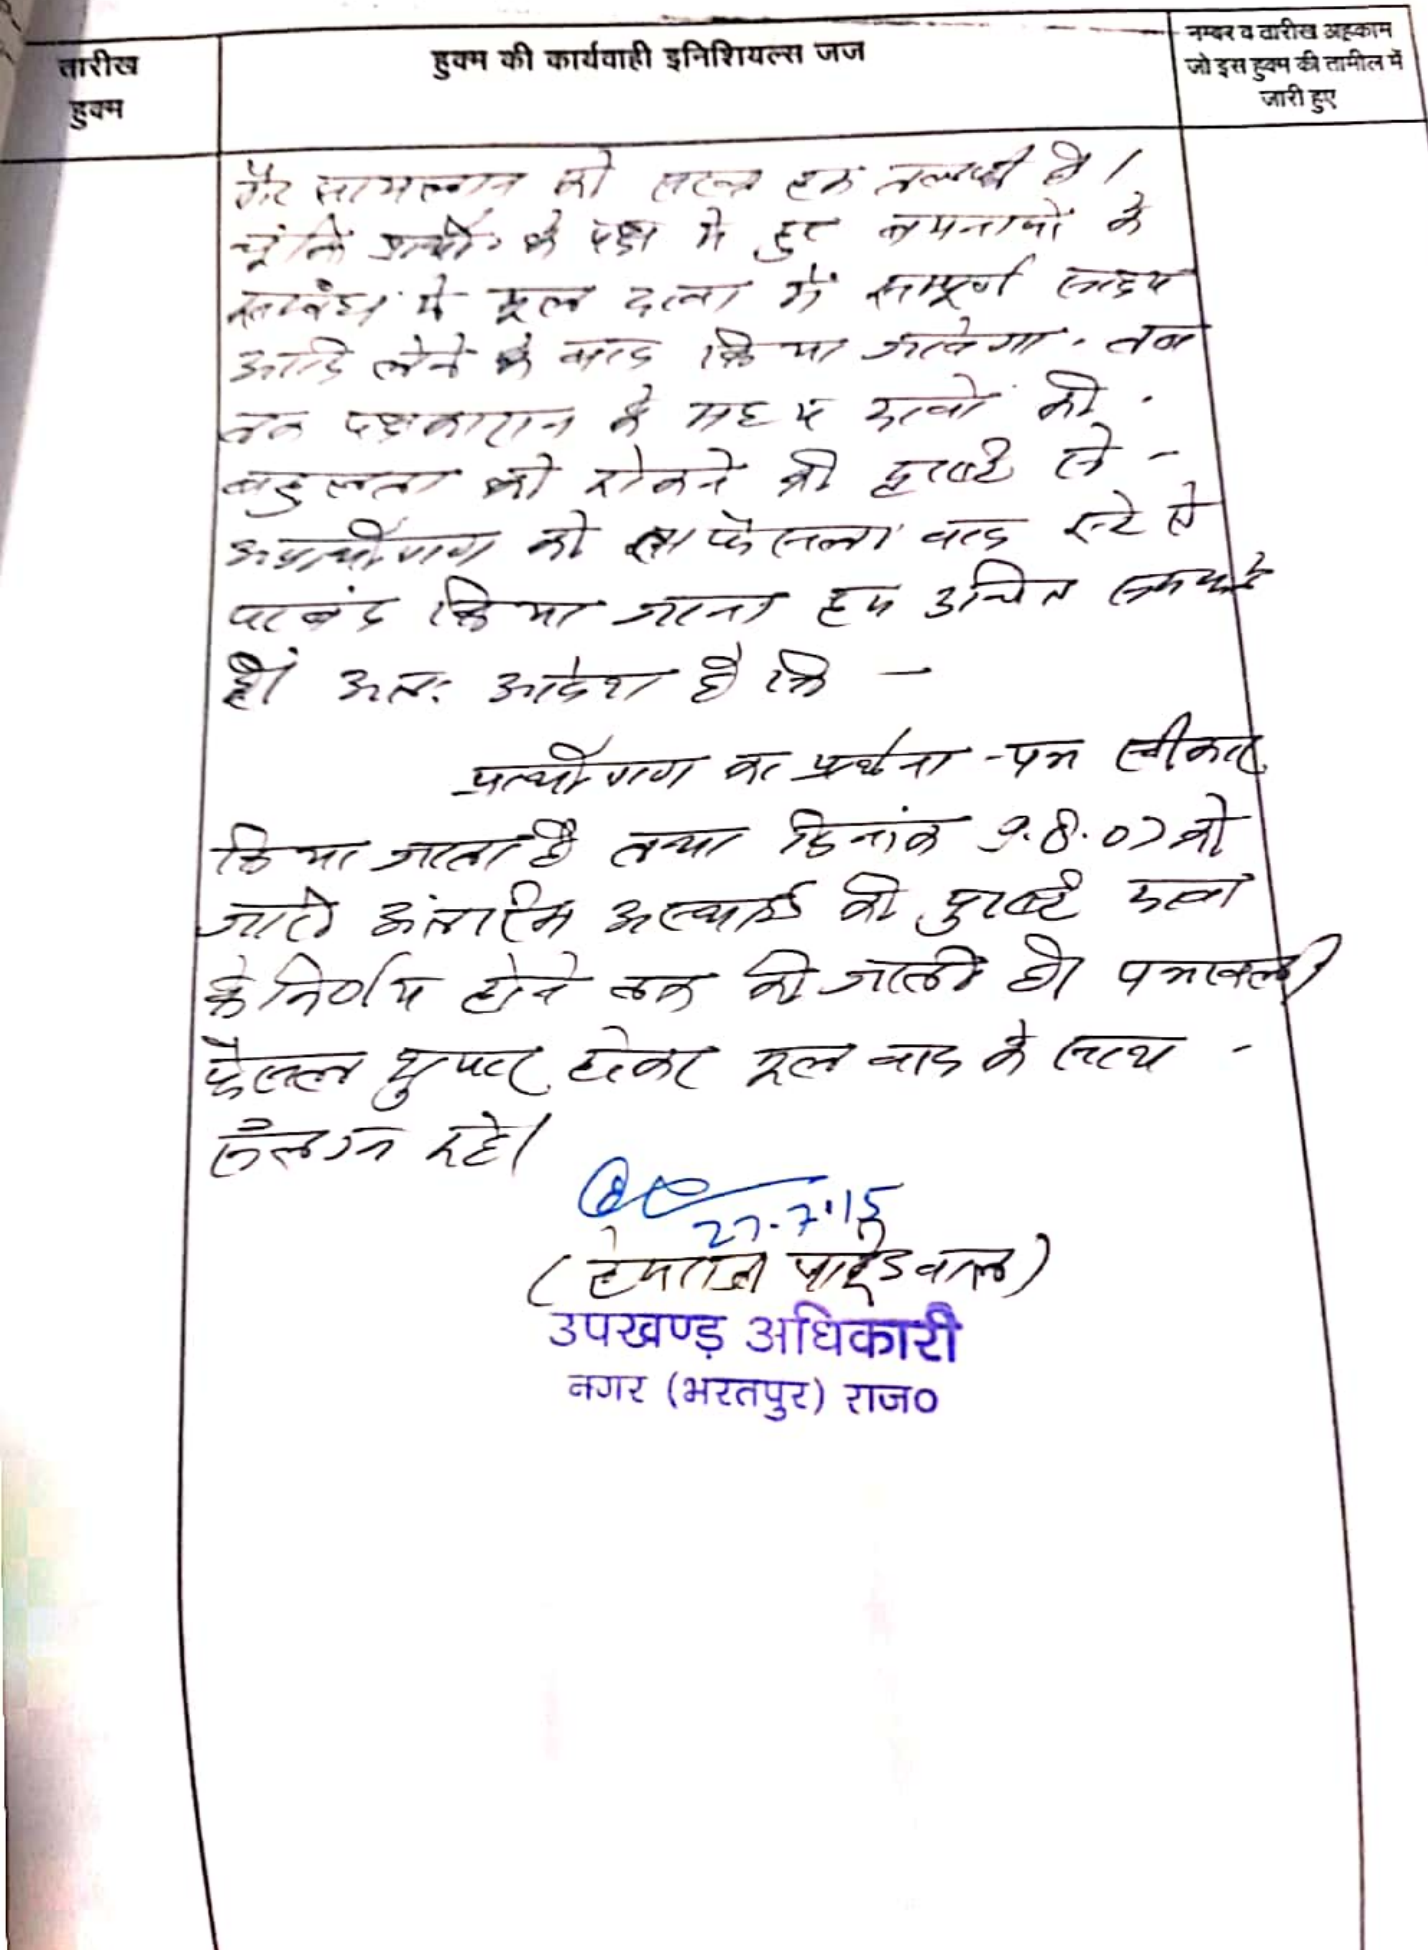 तारीख
हुक्म
हुक्म की कार्यवाही इनिशियल्स जज
नम्बर व तारीख अहकाम
जो इस हुक्म की तामील में
जारी हुए
गैर सायलान को हक है।
चूंकि प्रार्थी के पक्ष में हुए बयनामों के
सम्बंध में मूल दावा में सम्पूर्ण साक्ष्य
आदि लेने के बाद किया जावेगा. तब
तक पक्षकारान के मध्य वादों की
बहुलता को रोकने की दृष्टि से -
अप्रार्थीगण को ता फैसला वाद स्टे से
पाबंद किया जाना हम उचित समझते
है। अतः आदेश है कि -
प्रार्थीगण का प्रार्थना-पत्र स्वीकार
किया जाता है तथा दिनांक 9.8.07 को
जारी अंतरिम अस्थाई की पुष्टि दावा
के निर्णय होने तक की जाती है। पत्रावली
फैसल शुमार होकर मूल वाद के साथ -
संलग्न रहे।
27.7.15
(हेमराज)
उपखण्ड अधिकारी
नगर (भरतपुर) राज०